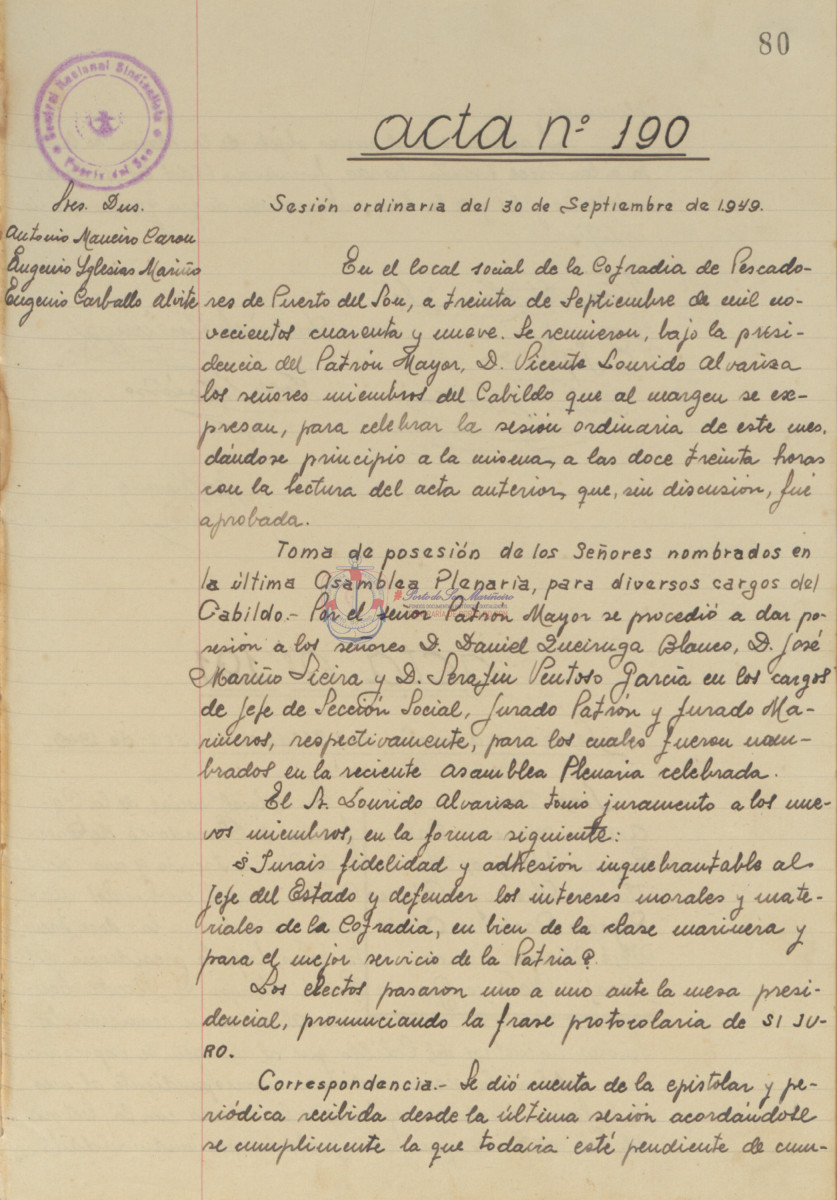 80
Central Nacional Sindicalista
Puerto del Son
acta nº 190
Sres. Dns.
Antonio Maneiro Carou
Eugenio Yglesias Mariño
Eugenio Carballo Alvite
Sesión ordinaria del 30 de Septiembre de 1.949.
En el local social de la Cofradia de Pescado-
res de Puerto del Son, a treinta de Septiembre de mil no-
vecientos cuarenta y nueve. Se reunieron, bajo la presi-
dencia del Patrón Mayor, D. Vicente Lourido Alvariza
los señores miembros del Cabildo que al margen se ex-
presan, para celebrar la sesión ordinaria de este mes,
dándose principio a la misma, a las doce treinta horas
con la lectura del acta anterior, que, sin discusión, fué
aprobada.
Toma de posesión de los Señores nombrados en
la última Asamblea Plenaria, para diversos cargos del
Cabildo.- Por el señor Patrón Mayor se procedió a dar po-
sesión a los señores D. Daniel Queiruga Blanco, D. José
Mariño Sieira y D. Serafin Ventoso García en los cargos
de Jefe de Sección Social, Jurado Patrón y Jurado Ma-
rineros, respectivamente, para los cuales fueron nom-
brados en la reciente asamblea Plenaria celebrada.
El Sr. Lourido Alvariza tomó juramento a los nue-
vos miembros, en la forma siguiente:
¿ Jurais fidelidad y adhesión inquebrantable al
Jefe del Estado y defender los intereses morales y mate-
riales de la Cofradia, en bien de la clase marinera y
para el mejor servicio de la Patria?.
Los electos pasaron uno a uno ante la mesa presi-
dencial, pronunciando la frase protocolaria de SI JU-
RO.
Correspondencia.- Se dió cuenta de la epistolar y pe-
riódica recibida desde la última sesión acordándose
se cumplimente la que todavia esté pendiente de cum-
Porto do Son Mariñeiro